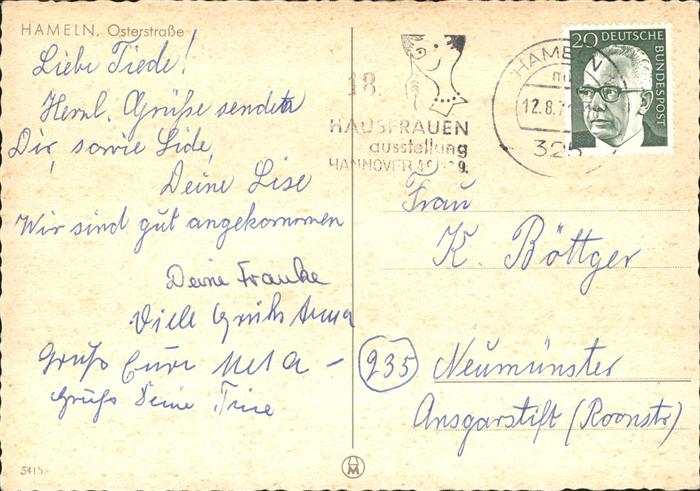 HAMELN, Osterstraße
Liebe Tiede!
Herzl. Grüße sendet
Dir, sowie Lide,
Deine Lise
Wir sind gut angekommen
Deine Frauke
Viele Grüße Anna
Gruß Eure Meta –
Gruß Deine
5415
18.
HAUSFRAUEN
ausstellung
HANNOVER
HAMELN
12.8.7
325
20 DEUTSCHE
BUNDESPOST
Frau
K. Böttger
235 Neumünster
Ansgarstift (Roonstr)